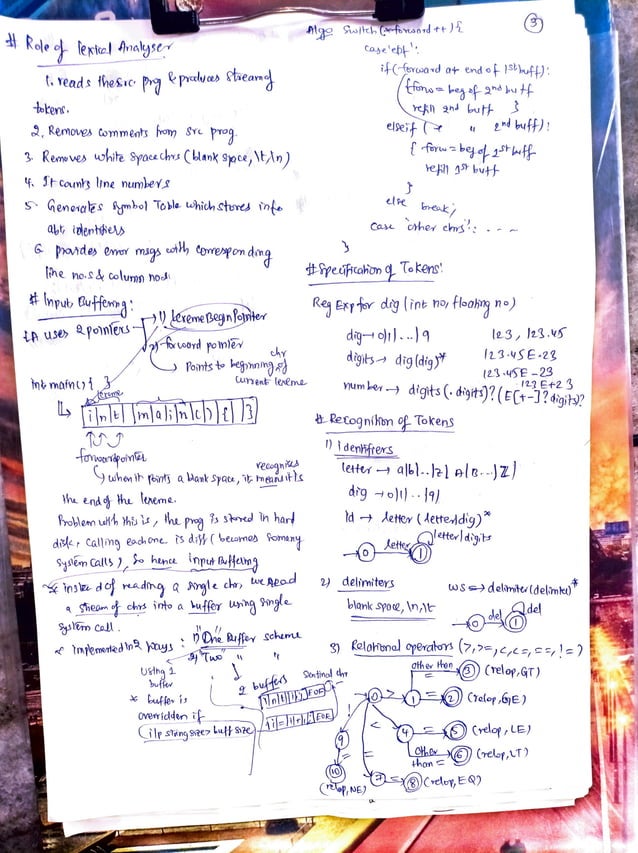 # Role of Lexical Analyser
1. reads the src. prg & produces stream of
tokens.
2. Removes comments from src prog.
3. Removes white space chrs (blank space, \t, \n)
4. It counts line numbers
5. Generates Symbol Table which stores info
abt identifiers
6. provides error msgs with corresponding
line no.s & column nos.
# Input Buffering:
LA uses 2 pointers
1) lexemeBeginPointer
2) forward pointer
Points to beginning chr of
current lexeme
int main() { }
lexeme
i n t m a i n ( ) { }
forwardpointer
when it points a blank space, it recognises means it is
the end of the lexeme.
Problem with this is, the prog is stored in hard
disk, calling each one is diff (becomes so many
system calls), So hence input Buffering
* instead of reading a single chr, we read
a stream of chrs into a buffer using single
system call.
* implemented in 2 ways:
1) "One" Buffer scheme
2) "Two" " "
Using 1
buffer
* buffer is
overridden if
i/p string size > buff size
2 buffers
Sentinal chr
i n t i j EOF
i = i + j ; EOF
3
Algo Switch (*forward++) {
case 'eof':
if (forward at end of 1st buff):
{ forw = beg of 2nd buff
refill 2nd buff }
elseif ( " " 2nd buff):
{ forw = beg of 1st buff
refill 1st buff
}
else
break;
case 'other chrs': - - ~
}
# Specification of Tokens:
Reg Exp for dig (int no, floating no)
dig → 0|1|...|9 123, 123.45
digits → dig(dig)* 123.45E-23
123.45E-23
123E+23
number → digits (.digits)? (E[+-]? digits)?
# Recognition of Tokens
1) Identifiers
letter → a|b|..|z| A|B...|Z|
dig → 0|1|..|9|
Id → letter (letter|dig)*
0 letter 1 letter|digits
2) delimiters ws → delimiter(delimiter)*
blank space, \n, \t
0 del 1 del
3) Relational operators (>, >=, <, <=, ==, !=)
other than = 3 (relop, GT)
0 > 1 = 2 (relop, GE)
< 4 = 5 (relop, LE)
other than = 6 (relop, LT)
= 7 = 8 (relop, EQ)
! 9 = 10
(relop, NE)